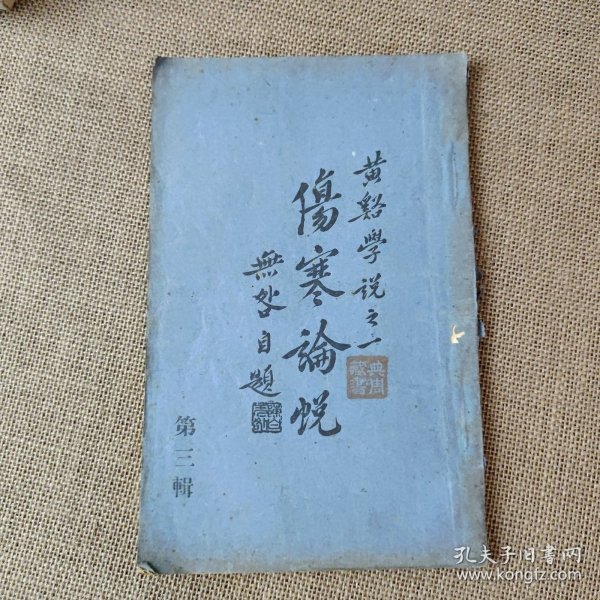 黄谿學説之一
傷寒論蜕
無咎自題
第三輯
孔夫子旧書网
www.kongfz.com